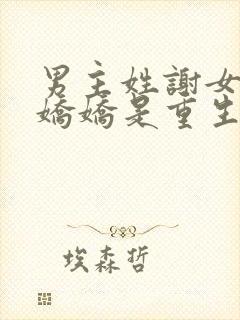 男主姓謝女
嬌嬌是重生
埃森哲